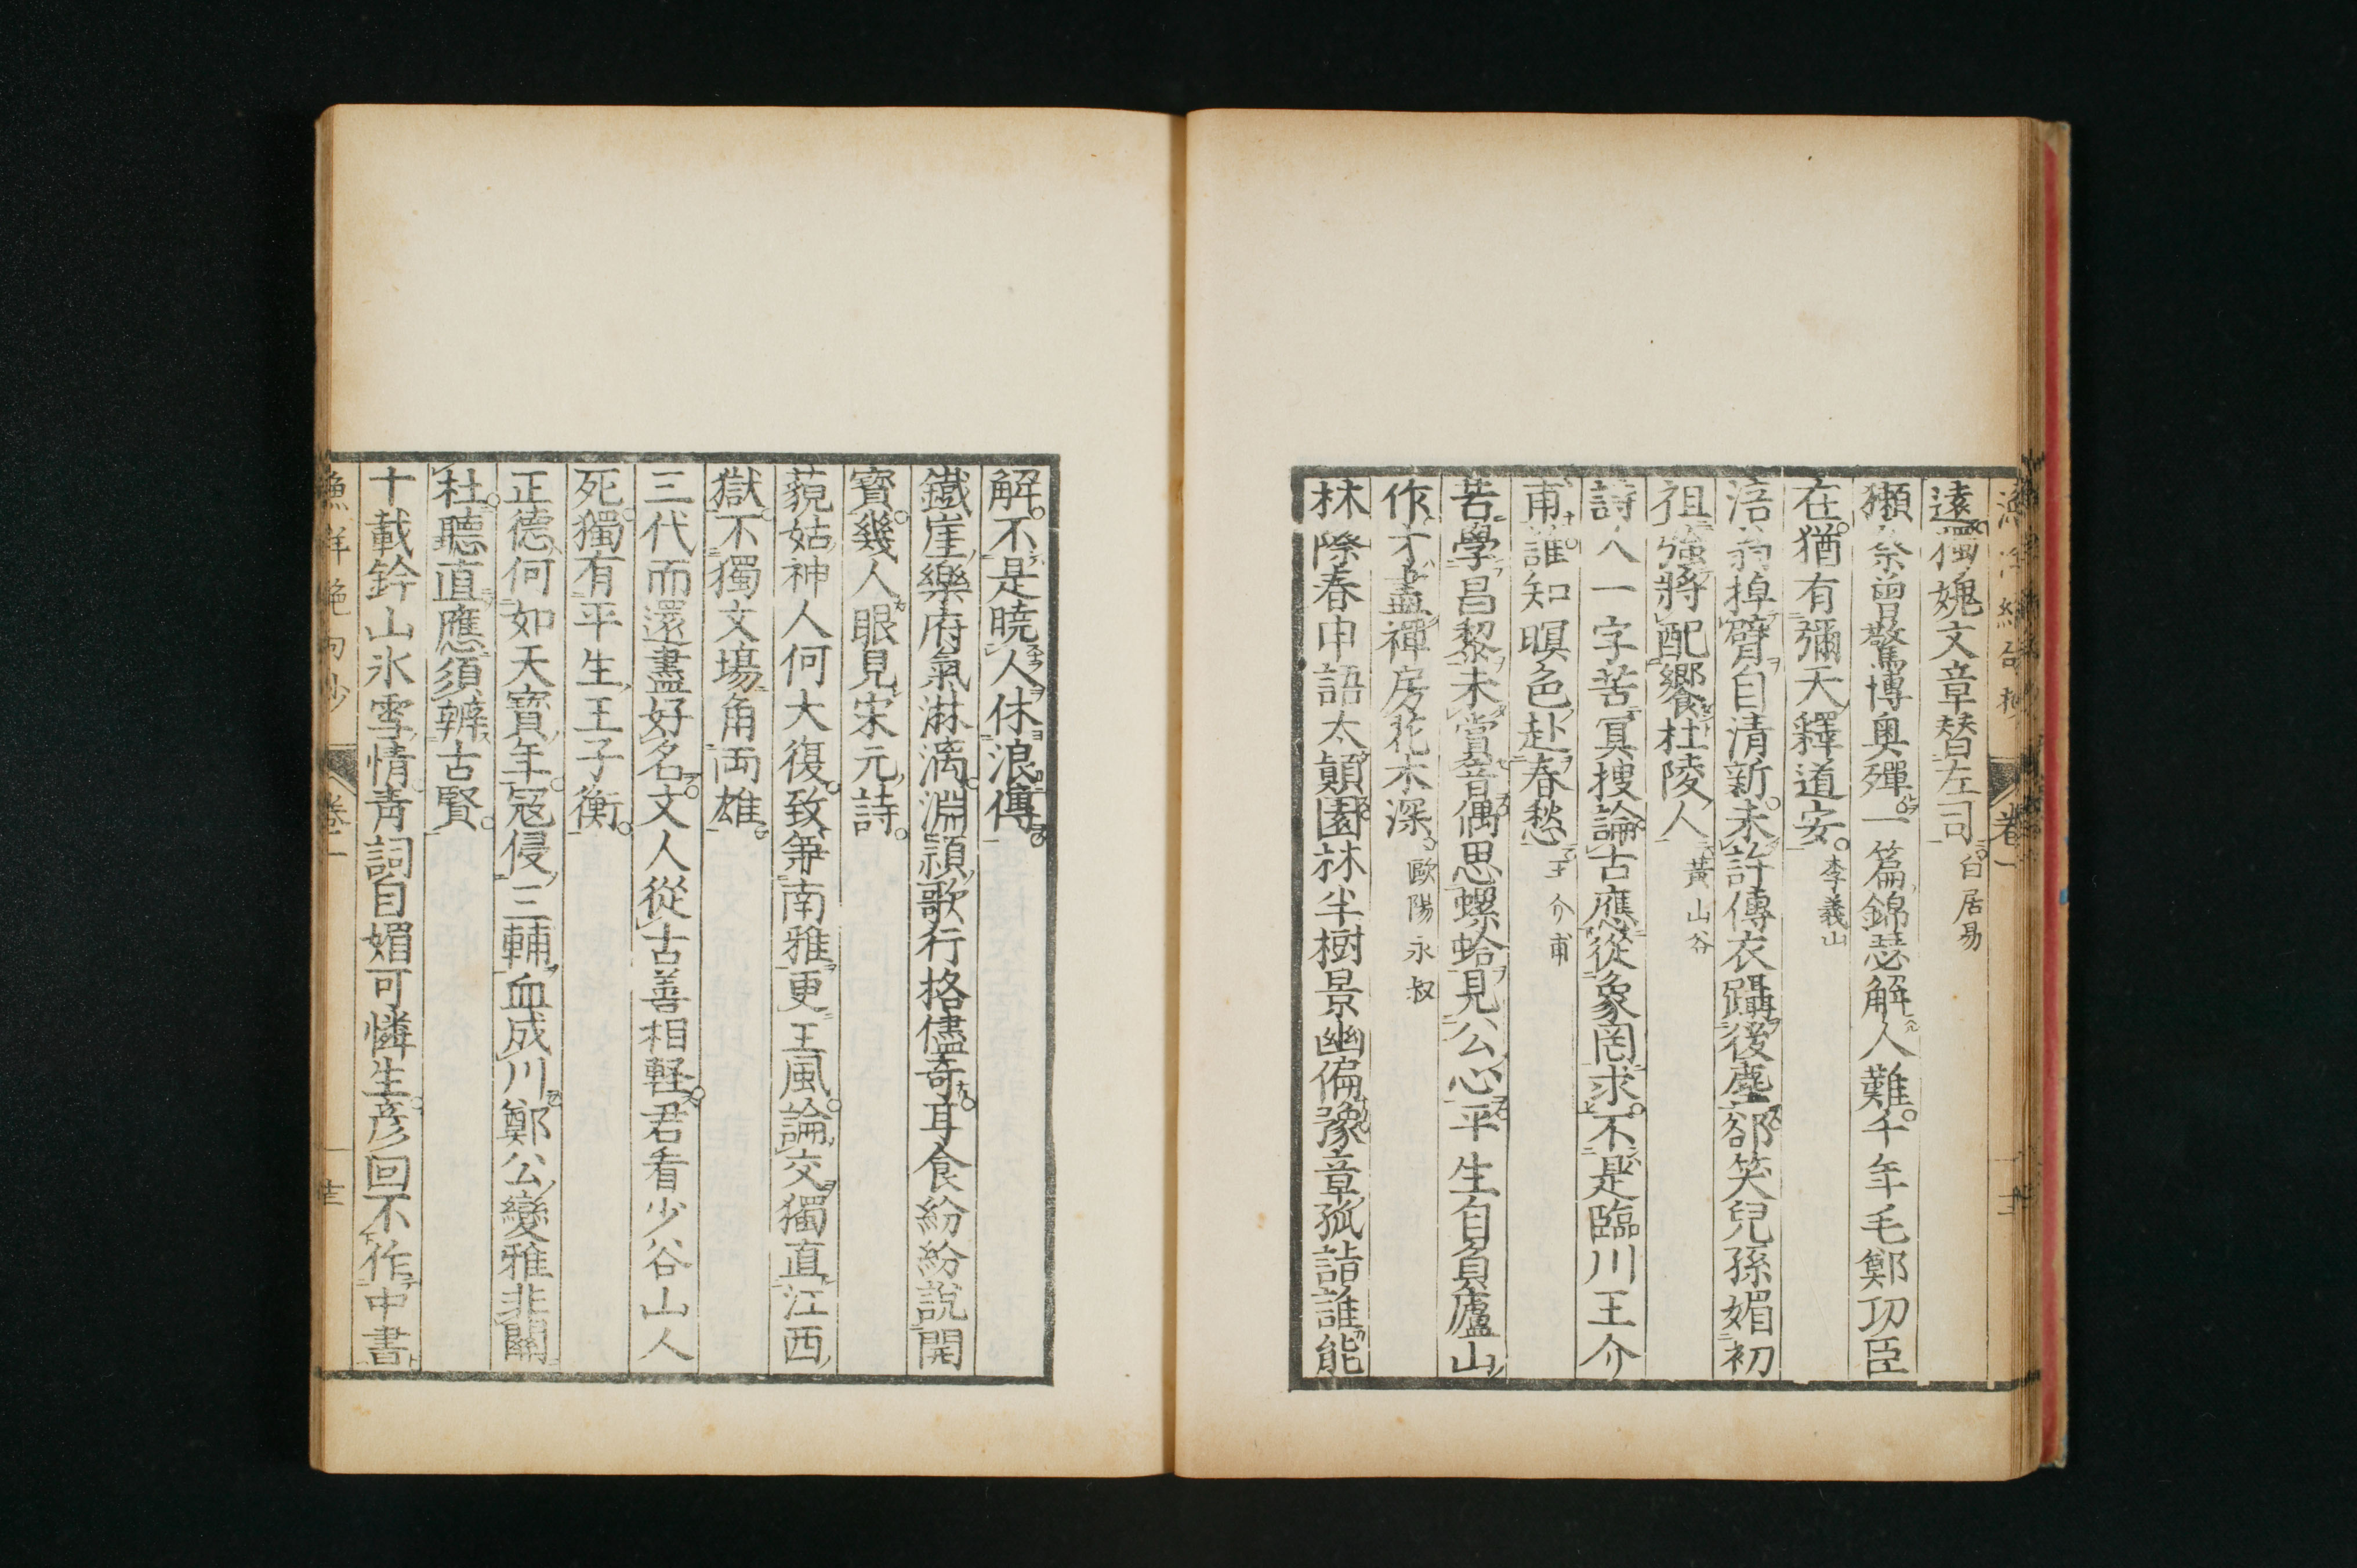 遠獨媿文章替左司 白居易
獺祭曾驚博奧殫一篇錦瑟解人難千年毛鄭功臣
在猶有彌天釋道安 李義山
涪翁掉臂自清新未許傳衣躡後塵卻笑兒孫媚初
祖強將配饗杜陵人 黃山谷
詩人一字苦冥搜論古應從象罔求不是臨川王介
甫誰知暝色赴春愁 王介甫
苦學昌黎未賞音偶思螺蛤見公心平生自負廬山
作才盡禪房花木深 歐陽永叔
林際春申語太顛園林半樹景幽偏豫章孤詣誰能
解不是曉人休浪傳
鐵崖樂府氣淋漓淵穎歌行格儘奇耳食紛紛說開
寶幾人眼見宋元詩
藐姑神人何大復致兼南雅更王風論交獨直江西
獄不獨文場角兩雄
三代而還盡好名文人從古善相輕君看少谷山人
死獨有平生王子衡
正德何如天寶年寇侵三輔血成川鄭公變雅非關
杜聽直應須辨古賢
十載鈐山氷雪情青詞自媚可憐生彥回不作中書
漁洋絕句抄 卷一